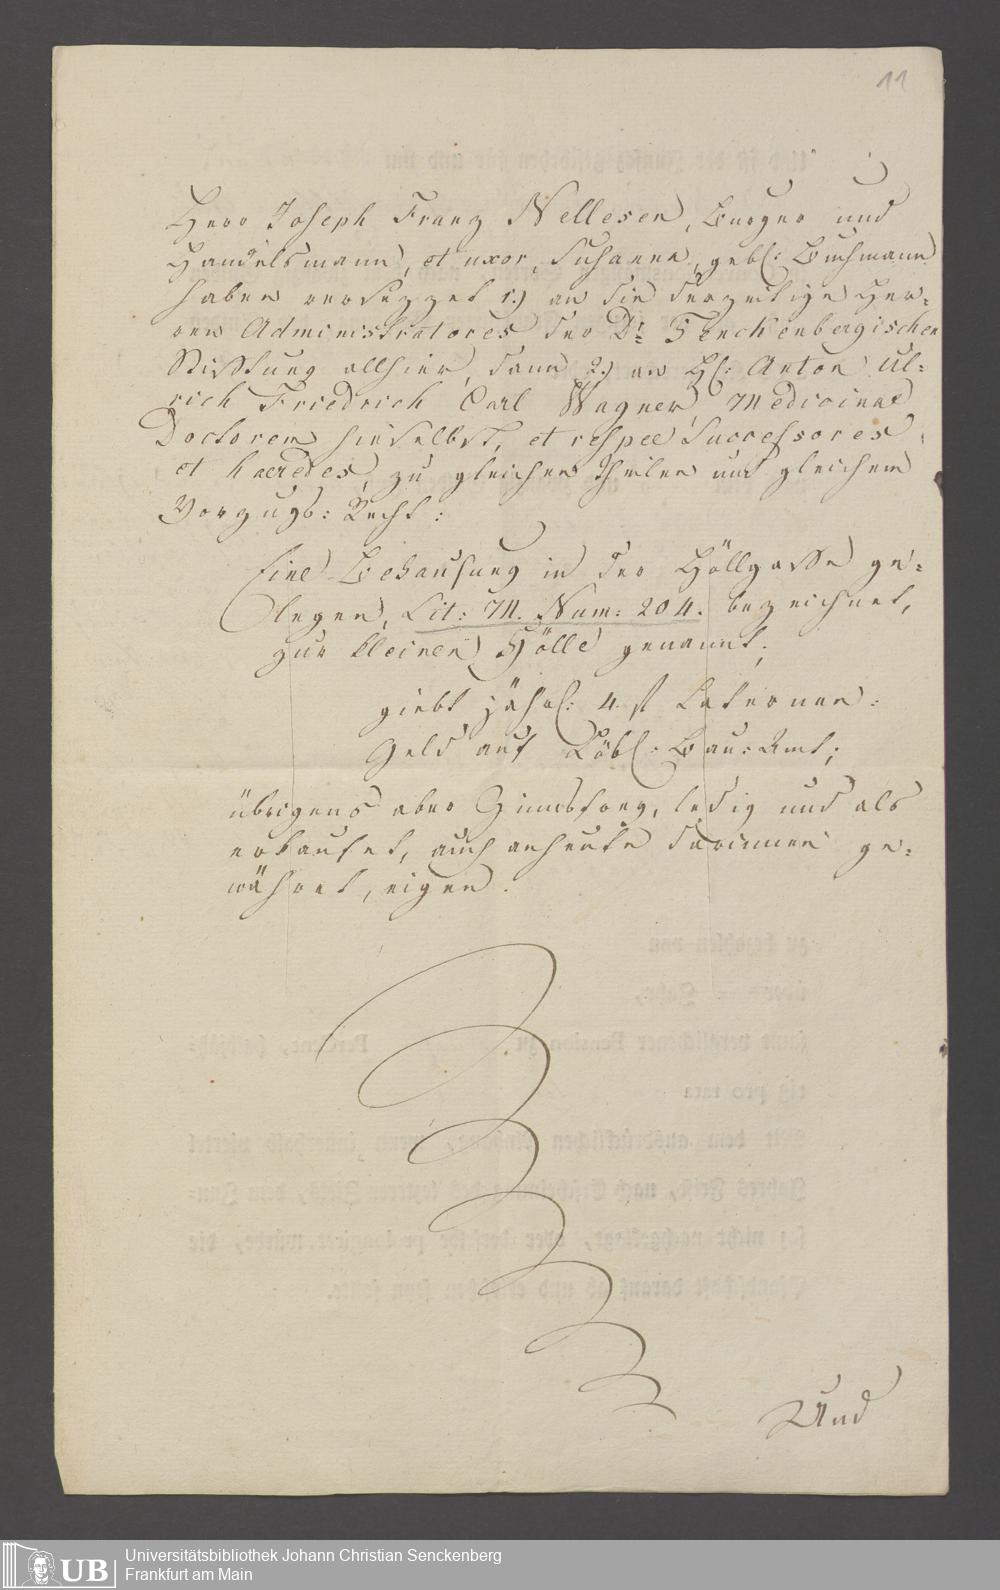 11
Herr Joseph Franz Nellesen, Burger und
Handelsmann, et uxor, Susanna, gebl: Buchmann
haben versezzet 1.) an die derzeitige Her=
ren Administratores der Dr. Senckenbergischen
Stifftung allhier, dann 2.) an Hl: Anton Ul=
rich Friedrich Carl Wagner, Medicinae
Doctorem hieselbst, et respec Successores
et haeredes, zu gleichen Theilen und gleichem
Vorzugs: Recht:
Eine Behausung in der Höllgasse ge=
legen, Lit: M. Num: 204. bezeichnet,
zur kleinen Hölle genannt;
giebt jährl: 4. ß Laternen:
Geld auf Löbl: Bau: Amt;
übrigens aber Zinnsfrey, ledig und als
erkaufet, auch anheute darinnen ge=
währet, eigen.
Und
UB
Universitätsbibliothek Johann Christian Senckenberg
Frankfurt am Main